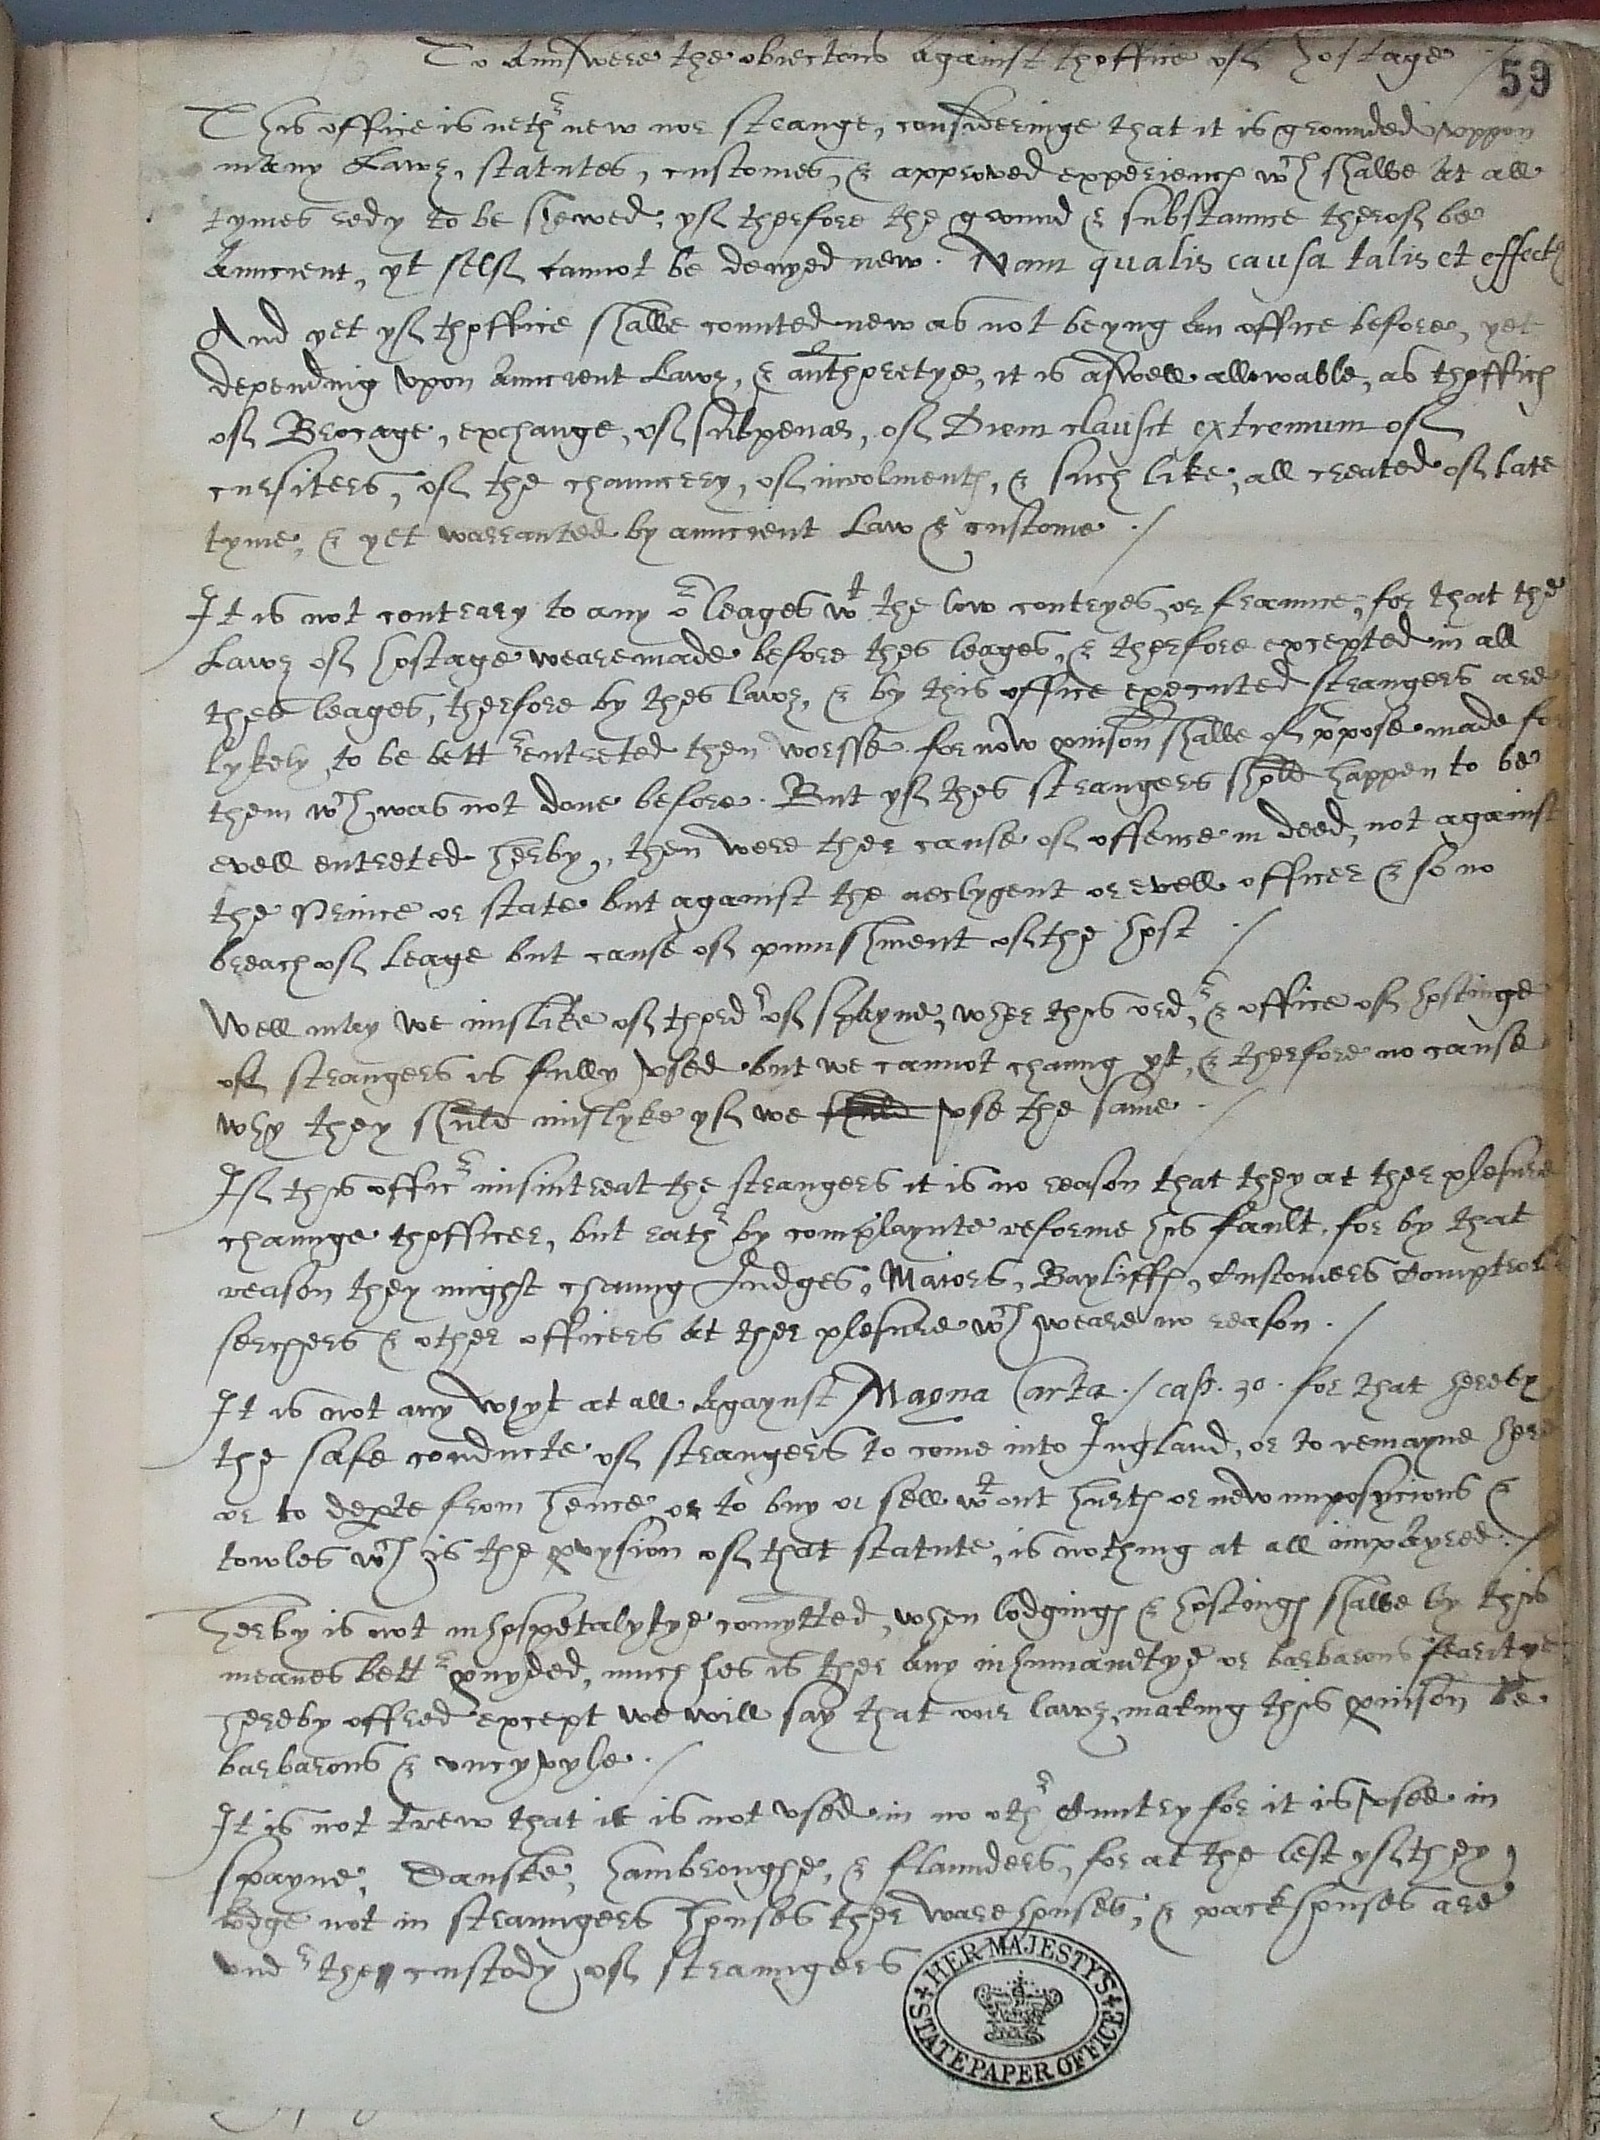 To Aunswere the obiectons Against thoffice of hostage
59
This office is nethr new nor strange, consideringe that it is grounded uppon
many Lawes, statutes, customes, & approved experience wch shalbe at all
tymes redy to be shewed, yf therfore the ground & substaunce therof be
Auncient, yt self cannot be denyed new. Nam qualis causa talis et effect
And yet yf thoffice shalbe counted new as not beyng An office before, yet
depending vpon Auncient Lawes, & authoretye, it is aswell allowable, as thoffices
of Brocage, exchange, of subpenas, of Diem clausit extremum of
cursiters, of the chauncery, of inrolmentes, & such like, all created of late
tyme, & yet warranted by auncient Law & custome ./
It is not contrary to any or leages wt the low contryes or fraunce, for that the
Lawes of hostage weare made before thes leages, & therfore excepted in all
thes leages, therfore by thes lawes, & by this office executed strangers are
lykely to be bettr entreted then worsse for now pvison shalbe of ppose made for
them wch was not done before. But yf thes strangers shold happen to be
evell entreted herby, then were ther cause of offence in deed, not against
the Prince or state but against the neclygent or evell officer & so no
breach of Leage but cause of punishment of the host ./
Well may we mislike of thordr of Spayne, wher this ordr & office of hostinge
of strangers is fully vsed but we cannot chaung yt, & therfore no cause
why they shuld mislyke yf we shuld vse the same ./
If this officr misintreat the strangers it is no reason that they at ther plesure
chaunge thofficer, but rathr by complaynte reforme his fault. for by that
reason they might chaung Judges, Maiors, Bayliffes, Customers Comptrolle
serchers & other officers at ther plesure wch weare no reason ./
It is not any whyt at all Agaynst Magna Carta ./ cap. 30. for that hereby
the safe conducte of strangers to come into Ingland, or to remayne here
or to depte from hence or to buy or sell wt out hurtes or new imposycions &
towles wch is the pvysion of that statute, is nothing at all impayred ./
Herby is not inhospetalytye comytted, when lodginges & hostinges shalbe by this
meanes bettr pvyded, much les is ther any inhumanetye or barbarous fearitye
hereby offred except we will say that our lawes making this pvison be
barbarous & vncyvyle ./
It is not trew that it is not vsed in no othr Cuntry for it is vsed in
Spayne, Danske, Hambroughe, & Flaunders, for at the lest yf they
lodge not in straungers houses ther warehouses, & packhouses are
undr the custody of straungers
HER MAJESTY'S STATE PAPER OFFICE